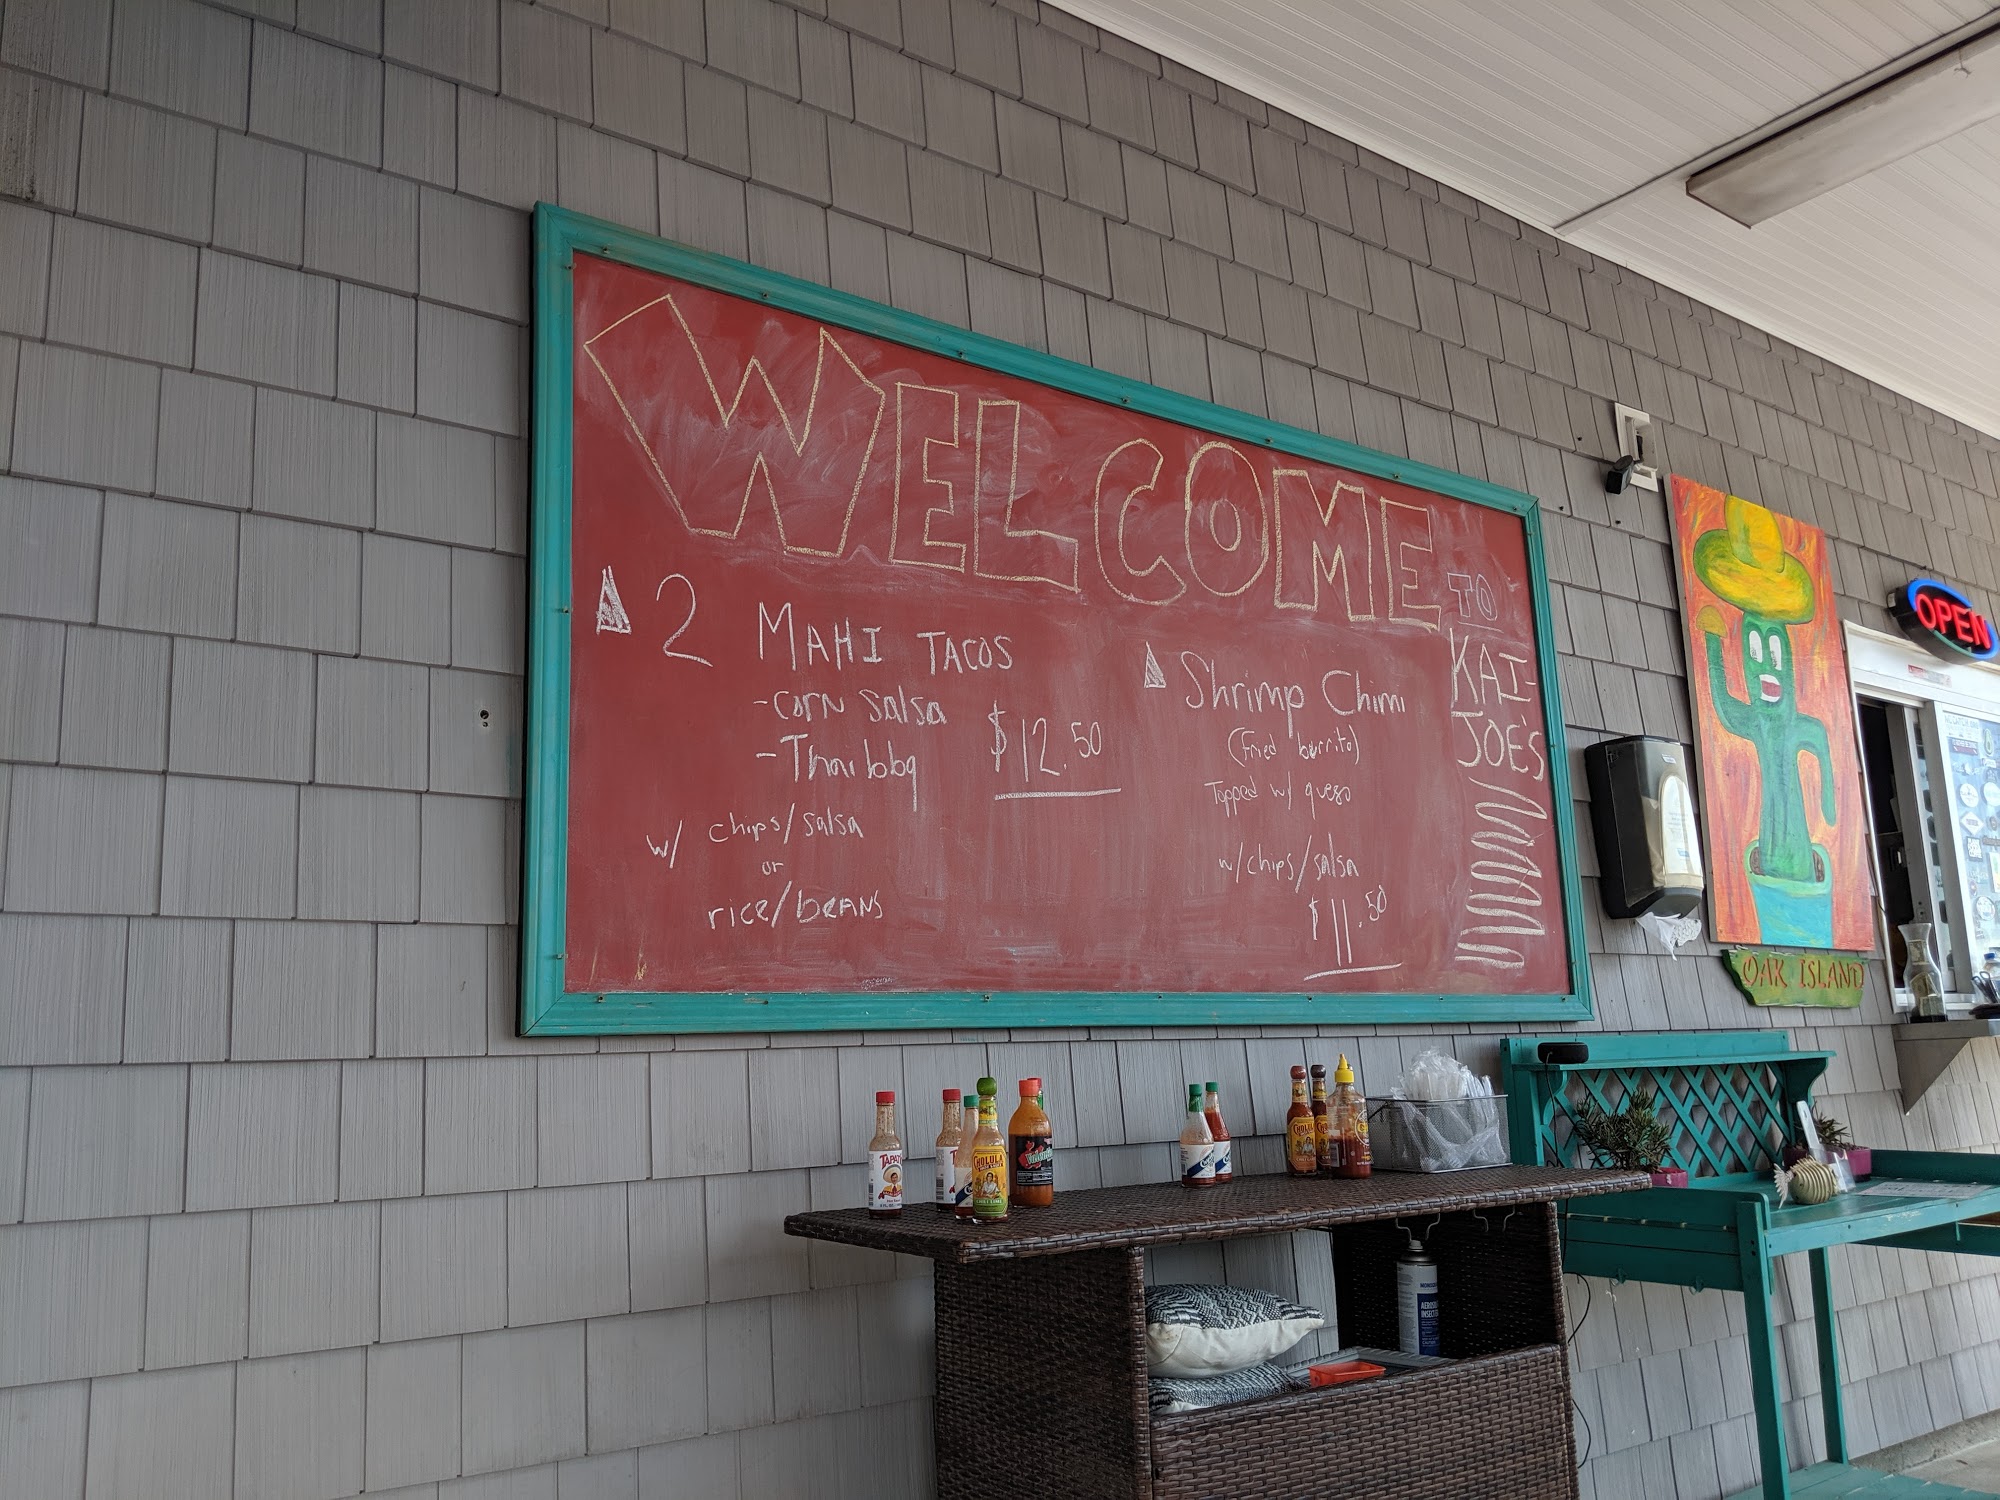 WELCOME TO
KAI-
JOE'S
2 MAHI TACOS
-corn salsa
-Thai bbq
$12.50
w/ chips/salsa
or
rice/beans
Shrimp Chimi
(fried burrito)
Topped w/ queso
w/chips/salsa
$11.50
OPEN
OAK ISLAND
TAPATI
CHOLULA
Valentina
CHOLULA